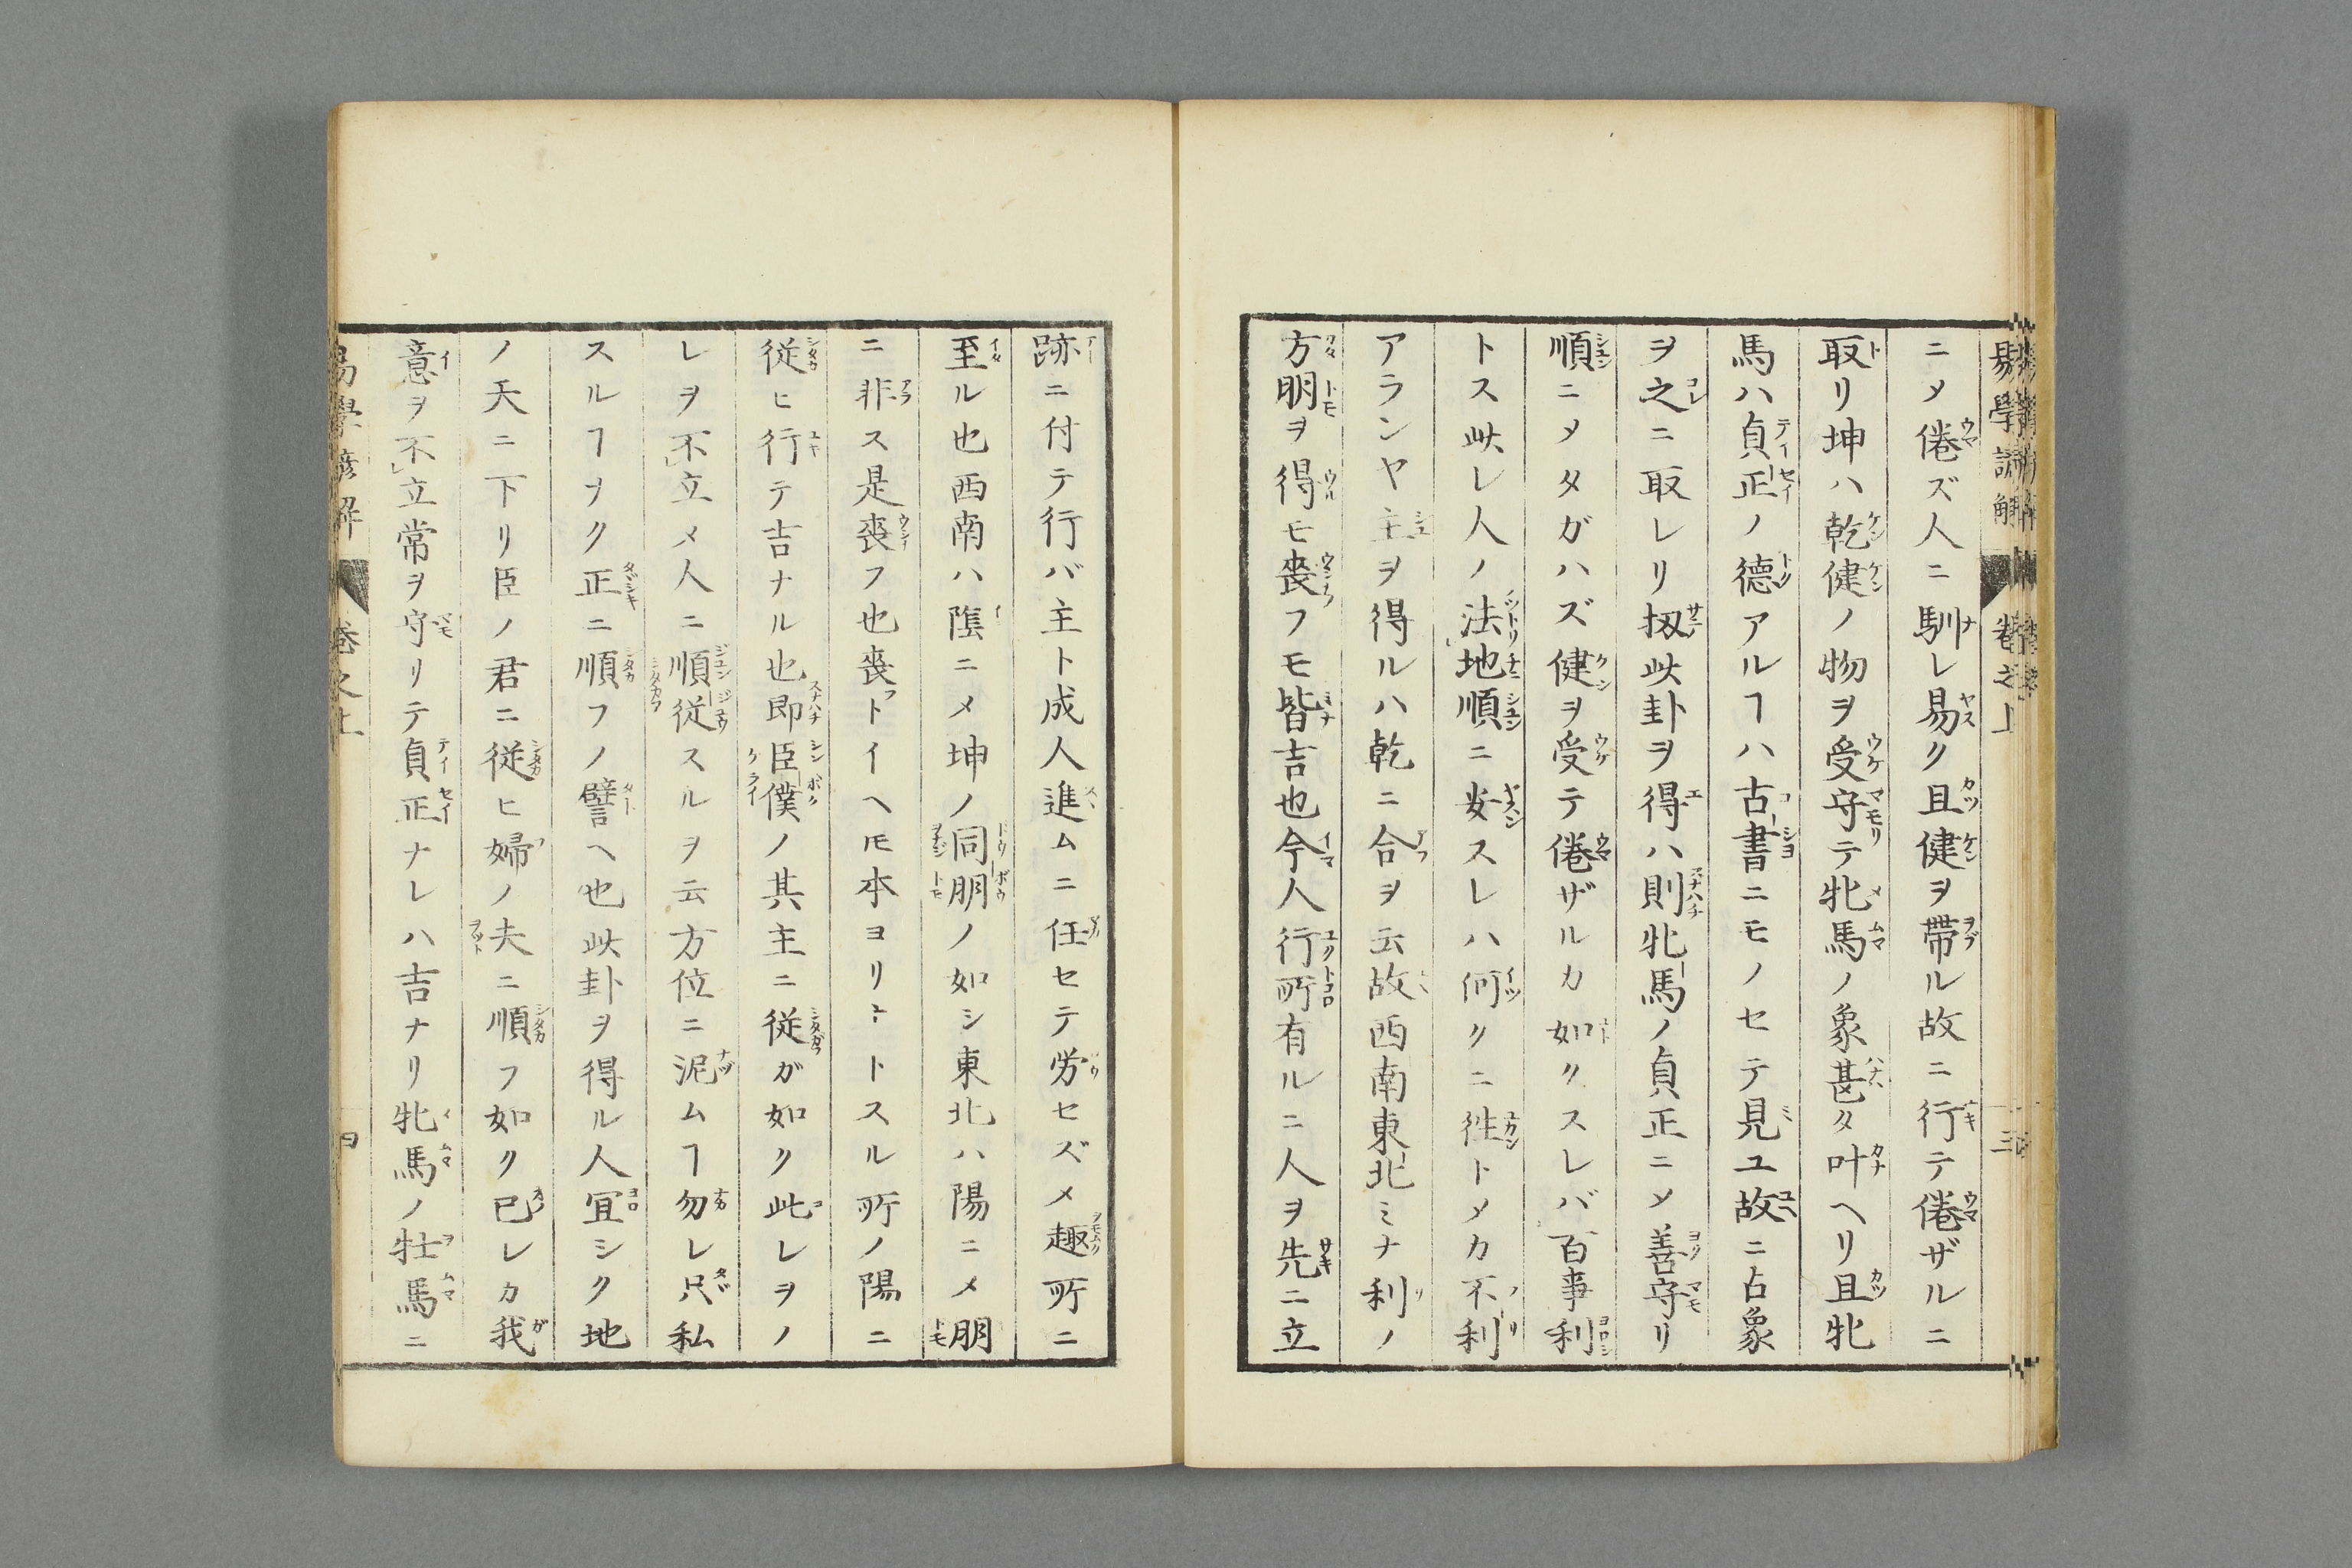 ニメ倦ズ人ニ馴レ易ク且健ヲ帶ル故ニ行テ倦ザルニ
取リ坤ハ乾健ノ物ヲ受守テ牝馬ノ象甚タ叶ヘリ且牝
馬ハ貞正ノ德アルヿハ古書ニモノセテ見ユ故ニ占象
ヲ之ニ取レリ扨此卦ヲ得ハ則牝馬ノ貞正ニメ善守リ
順ニメタガハズ健ヲ受テ倦ザルカ如クスレバ百事利
トス此レ人ノ法地順ニ安スレハ何クニ徃トメカ不利
アランヤ主ヲ得ルハ乾ニ合ヲ云故西南東北ミナ利ノ
方朋ヲ得モ喪フモ皆吉也今人行所有ルニ人ヲ先ニ立
跡ニ付テ行バ主ト成人進ムニ任セテ労セズメ趣所ニ
至ル也西南ハ陰ニメ坤ノ同朋ノ如シ東北ハ陽ニメ朋
ニ非ス是喪フ也喪トイヘ𪜈本ヨリ主トスル所ノ陽ニ
従ヒ行テ吉ナル也即臣僕ノ其主ニ従ガ如ク此レヲノ
レヲ不立メ人ニ順従スルヲ云方位ニ泥ムヿ勿レ只私
スルヿナク正ニ順フノ譬ヘ也此卦ヲ得ル人宜シク地
ノ天ニ下リ臣ノ君ニ従ヒ婦ノ夫ニ順フ如ク已レカ我
意ヲ不立常ヲ守リテ貞正ナレハ吉ナリ牝馬ノ牡馬ニ
易學諺解 巻之上 四